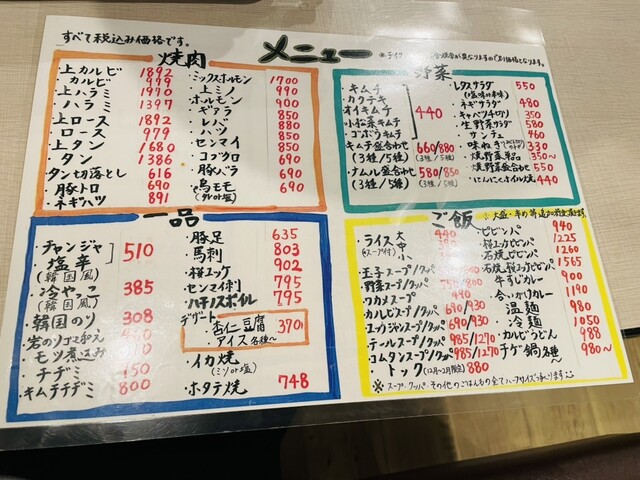 すべて税込み価格です。
メニュー
焼肉
・上カルビ 1892
・カルビ 979
・上ハラミ 1970
・ハラミ 1397
・上ロース 1892
・ロース 979
・上タン 1680
・タン 1386
・タン切り落とし 616
・豚トロ 690
・ネギハツ 891
・ミックスホルモン 1700
・上ミノ 990
・ホルモン 900
・ギアラ 850
・レバ 880
・ハツ 880
・センマイ 850
・コブクロ 690
・豚バラ 690
・鳥モモ 690
(タレor塩)
野菜
・キムチ
・カクテキ
・オイキムチ
・小松菜キムチ
・ゴボウキムチ
440
・キムチ盛合わせ 660/880
(3種/5種) (3種/5種)
・ナムル盛合わせ 580/850
(3種/5種)
・レタスサラダ 550
・ネギサラダ 480
・キャベツ千切り 350
・生野菜サラダ 580
・サンチュ 460
・味ねぎ 330
・焼野菜単品 350〜
・焼野菜盛合わせ 550
・にんにくオイル焼 440
一品
・チャンジャ
・塩辛
(韓国風)
510
・冷ややっこ 385
(韓国風)
・韓国のり 308
・岩のりゴマ和え
・モツ煮込み
・チヂミ
・キムチチヂミ 800
・豚足 635
・馬刺 803
・桜ユッケ 902
・センマイ刺 795
・ハチノスボイル 795
デザート
・杏仁豆腐 370
・アイス 各種〜
・イカ焼
(ミソor塩)
・ホタテ焼 748
ご飯
・ライス 大
中
小
(スープ付)
・玉子スープ/クッパ
・野菜スープ/クッパ
・ワカメスープ
・カルビスープ/クッパ 690/930
・ユッケジャンスープ/クッパ 690/930
・テールスープ/クッパ 985/1270
・コムタンスープ/クッパ 985/1270
・トック(12月〜2月限定) 880
・ビビンバ 940
・桜ユッケビビンバ 1225
・石焼ビビンバ 1260
・石焼桜ユッケビビンバ 1565
・牛すじカレー 900
・合いがけカレー 1190
・温麺 980
・冷麺 1050
・カルビうどん 988
・チゲ鍋各種〜 980〜
※スープ、クッパ、その他のごはんもの全てハーフサイズ承ります